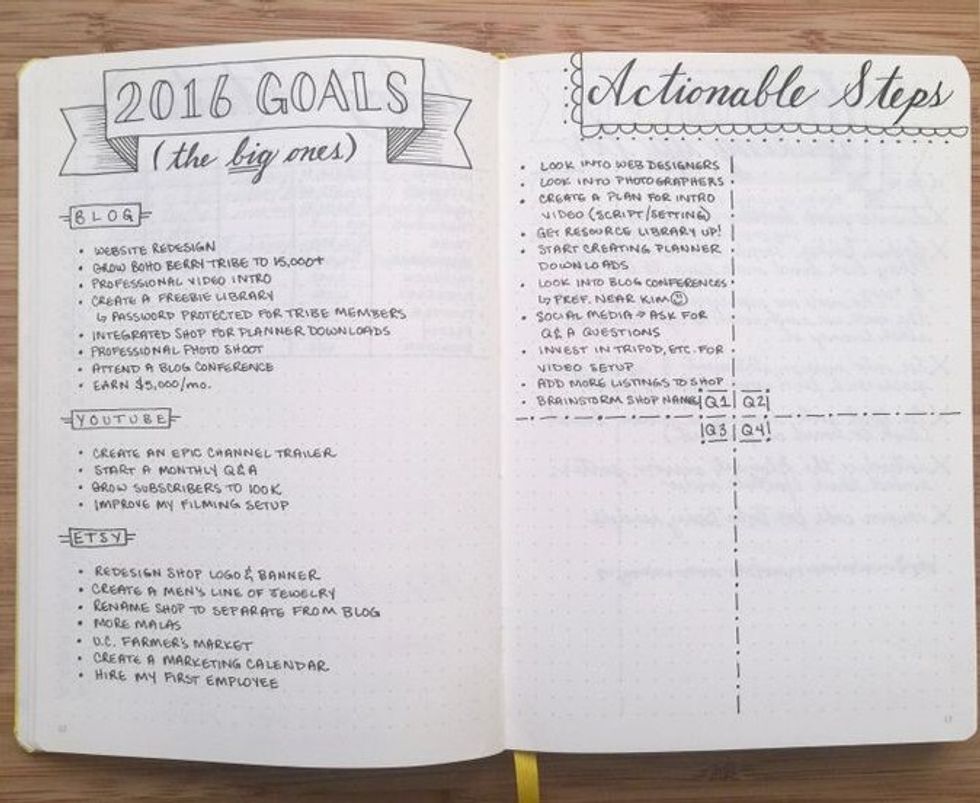 2016 GOALS
(the big ones)
BLOG
• WEBSITE REDESIGN
• GROW BOHO BERRY TRIBE TO 15,000+
• PROFESSIONAL VIDEO INTRO
• CREATE A FREEBIE LIBRARY
↳ PASSWORD PROTECTED FOR TRIBE MEMBERS
• INTEGRATED SHOP FOR PLANNER DOWNLOADS
• PROFESSIONAL PHOTO SHOOT
• ATTEND A BLOG CONFERENCE
• EARN $5,000/mo.
YOUTUBE
• CREATE AN EPIC CHANNEL TRAILER
• START A MONTHLY Q&A
• GROW SUBSCRIBERS TO 100K
• IMPROVE MY FILMING SETUP
ETSY
• REDESIGN SHOP LOGO & BANNER
• CREATE A MEN'S LINE OF JEWELRY
• RENAME SHOP TO SEPARATE FROM BLOG
• MORE MALAS
• U.C. FARMER'S MARKET
• CREATE A MARKETING CALENDAR
• HIRE MY FIRST EMPLOYEE
Actionable Steps
• LOOK INTO WEB DESIGNERS
• LOOK INTO PHOTOGRAPHERS
• CREATE A PLAN FOR INTRO
VIDEO (SCRIPT/SETTING)
• GET RESOURCE LIBRARY UP!
• START CREATING PLANNER
DOWNLOADS
• LOOK INTO BLOG CONFERENCES
↳ PREF. NEAR KIM ☺
• SOCIAL MEDIA → ASK FOR
Q&A QUESTIONS
• INVEST IN TRIPOD, ETC. FOR
VIDEO SETUP
• ADD MORE LISTINGS TO SHOP
• BRAINSTORM SHOP NAMES
Q1 Q2
Q3 Q4